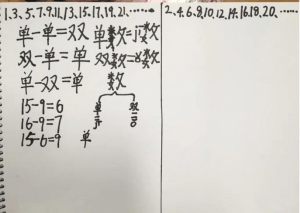 1.3、5.7.9.11.13.15.17.19.21.……
单-单=双
双-单=单
单-双=单
15-9=6
16-9=7
15-6=9
单数=jī数
双数=ǒu数
数
单
双
单
2.4.6.8.10.12.14.16.18.20.……